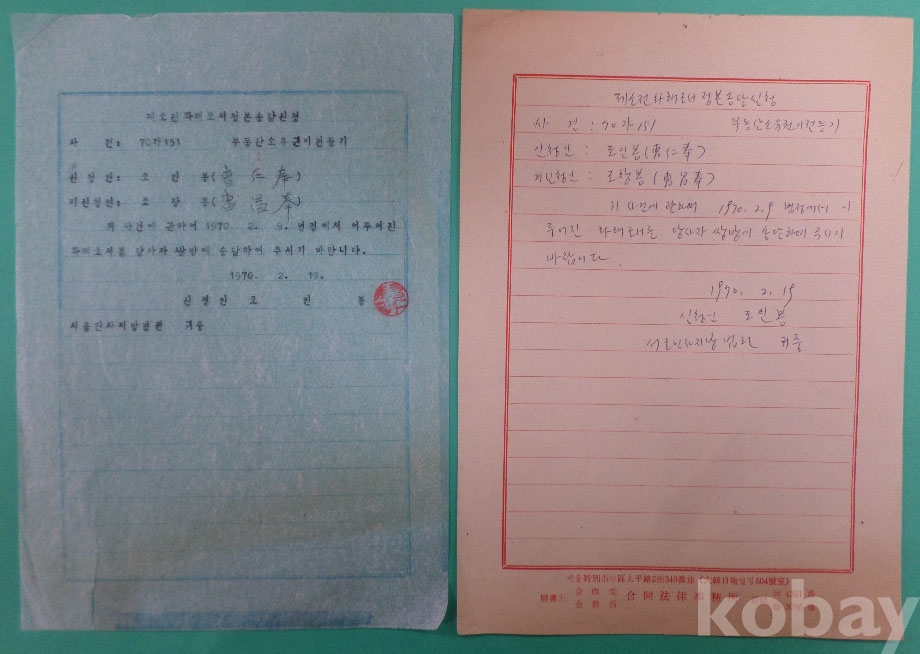 제소전화해조서정본송달신청
사 건: 70자151 부동산소유권이전등기
신청인: 조 인 봉(曺仁奉)
피신청인: 조 창 봉(曺昌奉)
위 사건에 관하여 1970. 2. 9. 법정에서 이루어진
화해조서를 당사자 쌍방에 송달하여 주시기 바랍니다.
1970. 2. 19.
신 청 인 조 인 봉
서울민사지방법원 귀중
제소전화해조서 정본송달신청
사 건 : 70자151 부동산소유권이전등기
신청인 : 조인봉 (曺仁奉)
피신청인 : 조창봉 (曺昌奉)
위 사건에 관하여 1970. 2. 9 법정에서 이
루어진 화해조서를 당사자 쌍방에 송달하여 주시기
바랍니다
1970. 2. 19
신청인 조인봉
서울민사지방법원 귀중
서울特別市中區太平路2街340番地 (大韓日報빌딩504號室)
辯護士 合同法律事務所
kobay